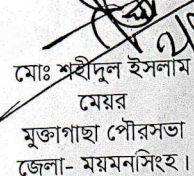 মোঃ শহীদুল ইসলাম
মেয়র
মুক্তাগাছা পৌরসভা
জেলা- ময়মনসিংহ।